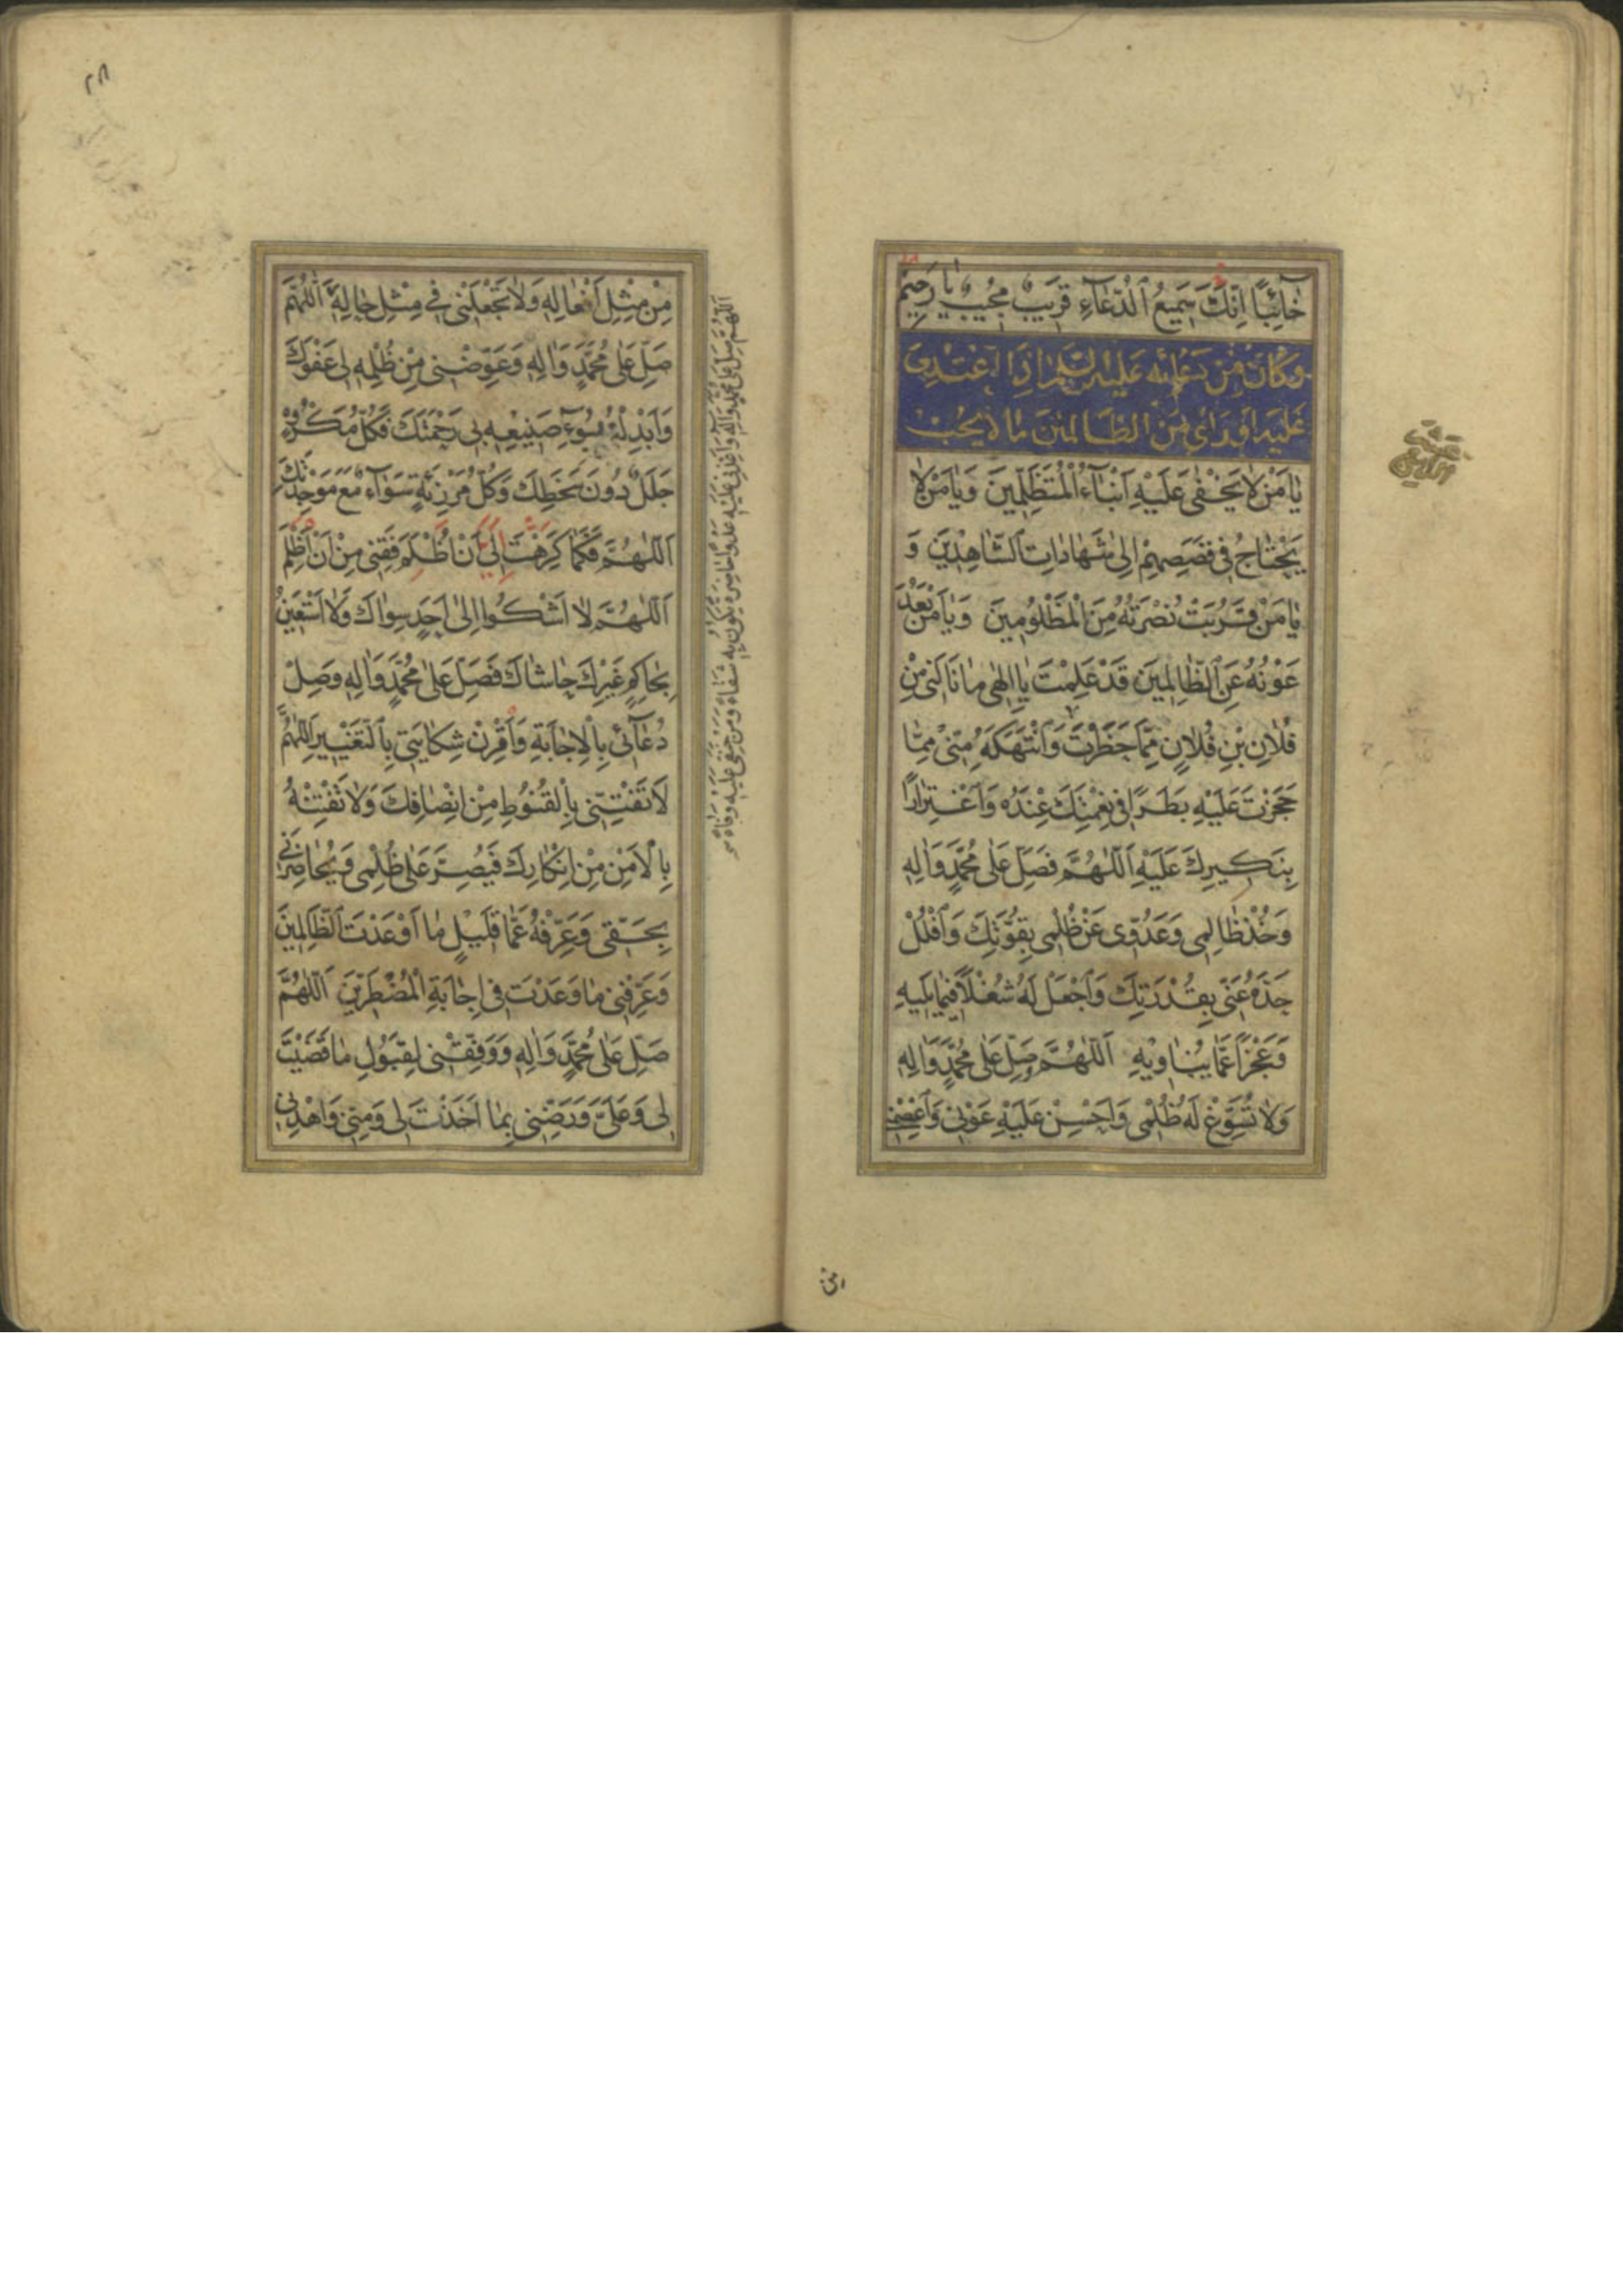 خَآئِبًا اِنَّكَ سَمِيعُ ٱلدُّعَآءِ قَرِيبٌ مُجِيبٌ يَا رَحِيمُ
وَكَانَ مِنْ دُعَائِهِ عَلَيْهِ السَّلَامُ اِذَا اعْتُدِىَ
عَلَيْهِ اَوْ رَاى مِنَ الظَّالِمِينَ مَا لَا يُحِبُّ
يَا مَنْ لَا يَخْفٰى عَلَيْهِ اَنْبَآءُ الْمُتَظَلِّمِينَ وَيَا مَنْ لَا
يَحْتَاجُ فِى قَصَصِهِمْ اِلٰى شَهَادَاتِ ٱلشَّاهِدِينَ وَ
يَا مَنْ قَرُبَتْ نُصْرَتُهُ مِنَ الْمَظْلُومِينَ وَيَا مَنْ بَعُدَ
عَوْنُهُ عَنِ ٱلظَّالِمِينَ قَدْ عَلِمْتَ يَا اِلٰهِى مَا نَالَنِى مِنْ
فُلَانِ بْنِ فُلَانٍ مِمَّا حَظَرْتَ وَٱنْتَهَكَهُ مِنِّى مِمَّا
حَجَزْتَ عَلَيْهِ بَطَرًا فِى نِعْمَتِكَ عِنْدَهُ وَٱغْتِرَارًا
بِنَكِيرِكَ عَلَيْهِ اَللّٰهُمَّ فَصَلِّ عَلٰى مُحَمَّدٍ وَاٰلِهِ
وَخُذْ ظَالِمِى وَعَدُوِّى عَنْ ظُلْمِى بِقُوَّتِكَ وَٱفْلُلْ
حَدَّهُ عَنِّى بِقُدْرَتِكَ وَٱجْعَلْ لَهُ شُغْلًا فِيمَا يَلِيهِ
وَعَجْزًا عَمَّا يُنَاوِيهِ اَللّٰهُمَّ وَصَلِّ عَلٰى مُحَمَّدٍ وَاٰلِهِ
وَلَا تُسَوِّغْ لَهُ ظُلْمِى وَاَحْسِنْ عَلَيْهِ عَوْنِى وَٱعْصِمْنِى
٢٨
مِنْ مِثْلِ اَفْعَالِهِ وَلَا تَجْعَلْنِى فِى مِثْلِ حَالِهِ اَللّٰهُمَّ
صَلِّ عَلٰى مُحَمَّدٍ وَاٰلِهِ وَعَوِّضْنِى مِنْ ظُلْمِهِ لِى عَفْوَكَ
وَاَبْدِلْنِى بِسُوٓءِ صَنِيعِهِ بِى رَحْمَتَكَ فَكُلُّ مَكْرُوهٍ
جَلَلٌ دُونَ سَخَطِكَ وَكُلُّ مَرْزِئَةٍ سَوَآءٌ مَعَ مَوْجِدَتِكَ
اَللّٰهُمَّ فَكَمَا كَرَّهْتَ اِلَىَّ اَنْ اُظْلَمَ فَقِنِى مِنْ اَنْ اَظْلِمَ
اَللّٰهُمَّ لَا اَشْكُوا اِلٰى اَحَدٍ سِوَاكَ وَلَا اَسْتَعِينُ
بِحَاكِمٍ غَيْرِكَ حَاشَاكَ فَصَلِّ عَلٰى مُحَمَّدٍ وَاٰلِهِ وَصِلْ
دُعَآئِى بِالْاِجَابَةِ وَٱقْرِنْ شِكَايَتِى بِٱلتَّغْيِيرِ اَللّٰهُمَّ
لَا تَفْتِنِّى بِالْقُنُوطِ مِنْ اِنْصَافِكَ وَلَا تَفْتِنْهُ
بِالْاَمْنِ مِنْ اِنْكَارِكَ فَيُصِرَّ عَلٰى ظُلْمِى وَيُحَاضِرَنِى
بِحَقِّى وَعَرِّفْهُ عَمَّا قَلِيلٍ مَا اَوْعَدْتَ ٱلظَّالِمِينَ
وَعَرِّفْنِى مَا وَعَدْتَ فِى اِجَابَةِ الْمُضْطَرِّينَ اَللّٰهُمَّ
صَلِّ عَلٰى مُحَمَّدٍ وَاٰلِهِ وَوَفِّقْنِى لِقَبُولِ مَا قَضَيْتَ
لِى وَعَلَىَّ وَرَضِّنِى بِمَا اَخَذْتَ لِى وَمِنِّى وَٱهْدِنِى
اَللّٰهُمَّ صَلِّ عَلٰى مُحَمَّدٍ وَاٰلِهِ وَاَعْدِنِى عَلَيْهِ عَدْوًى حَاضِرَةً تَكُونُ بِهِ شِفَآءً وَمِنْ حَنَقِى عَلَيْهِ وَفَآءً